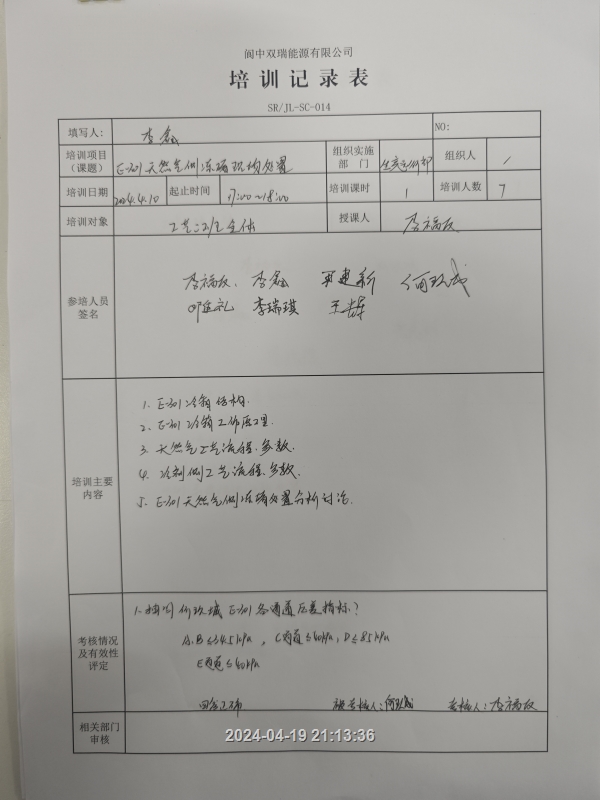 阆中双瑞能源有限公司
培训记录表
SR/JL-SC-014
填写人： 李鑫 NO:
培训项目（课题） E-301天然气侧冻堵现场处置 组织实施部门 生产运行部 组织人 /
培训日期 2024.4.10 起止时间 17:00~18:00 培训课时 1 培训人数 7
培训对象 工艺二班全体 授课人 李福友
参培人员签名
李福友、李鑫 何玖成
邓廷礼 李瑞琪 王辉
培训主要内容
1. E-301冷箱结构.
2. E-301冷箱工作原理.
3. 天然气工艺流程、参数.
4. 冷剂侧工艺流程、参数.
5. E-301天然气侧冻堵处置分析讨论.
考核情况及有效性评定
1. 抽问何玖成E-301各通道压差指标？
A、B≤34.5kPa，C通道≤40kPa，D≤85kPa
E通道≤40kPa
回答正确 被考核人：何玖成 考核人：李福友
相关部门审核
2024-04-19 21:13:36